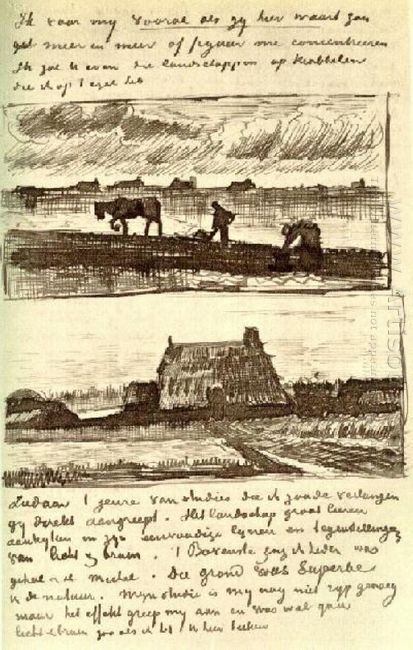 Ik voor my vooral als gy hier waart zou
meer en meer of figuur me concentreeren
Ik zal U even die landschappen op krabbelen
die ik op ezel heb
Ziedaar 't genre van studies die ik zoude verlangen
gy direkt aangreept. Het landschap groot leeren
aankyken in zyn eenvoudige lynen en tegenstellingen
van licht & bruin. 't Bovenste zag ik heden was
geheel Michel. Die grond was superbe
in de natuur. Myn studie is my nog niet ryp genoeg
maar het effekt greep my aan en was wel qua
licht & bruin zoo als ik het U hier teeken